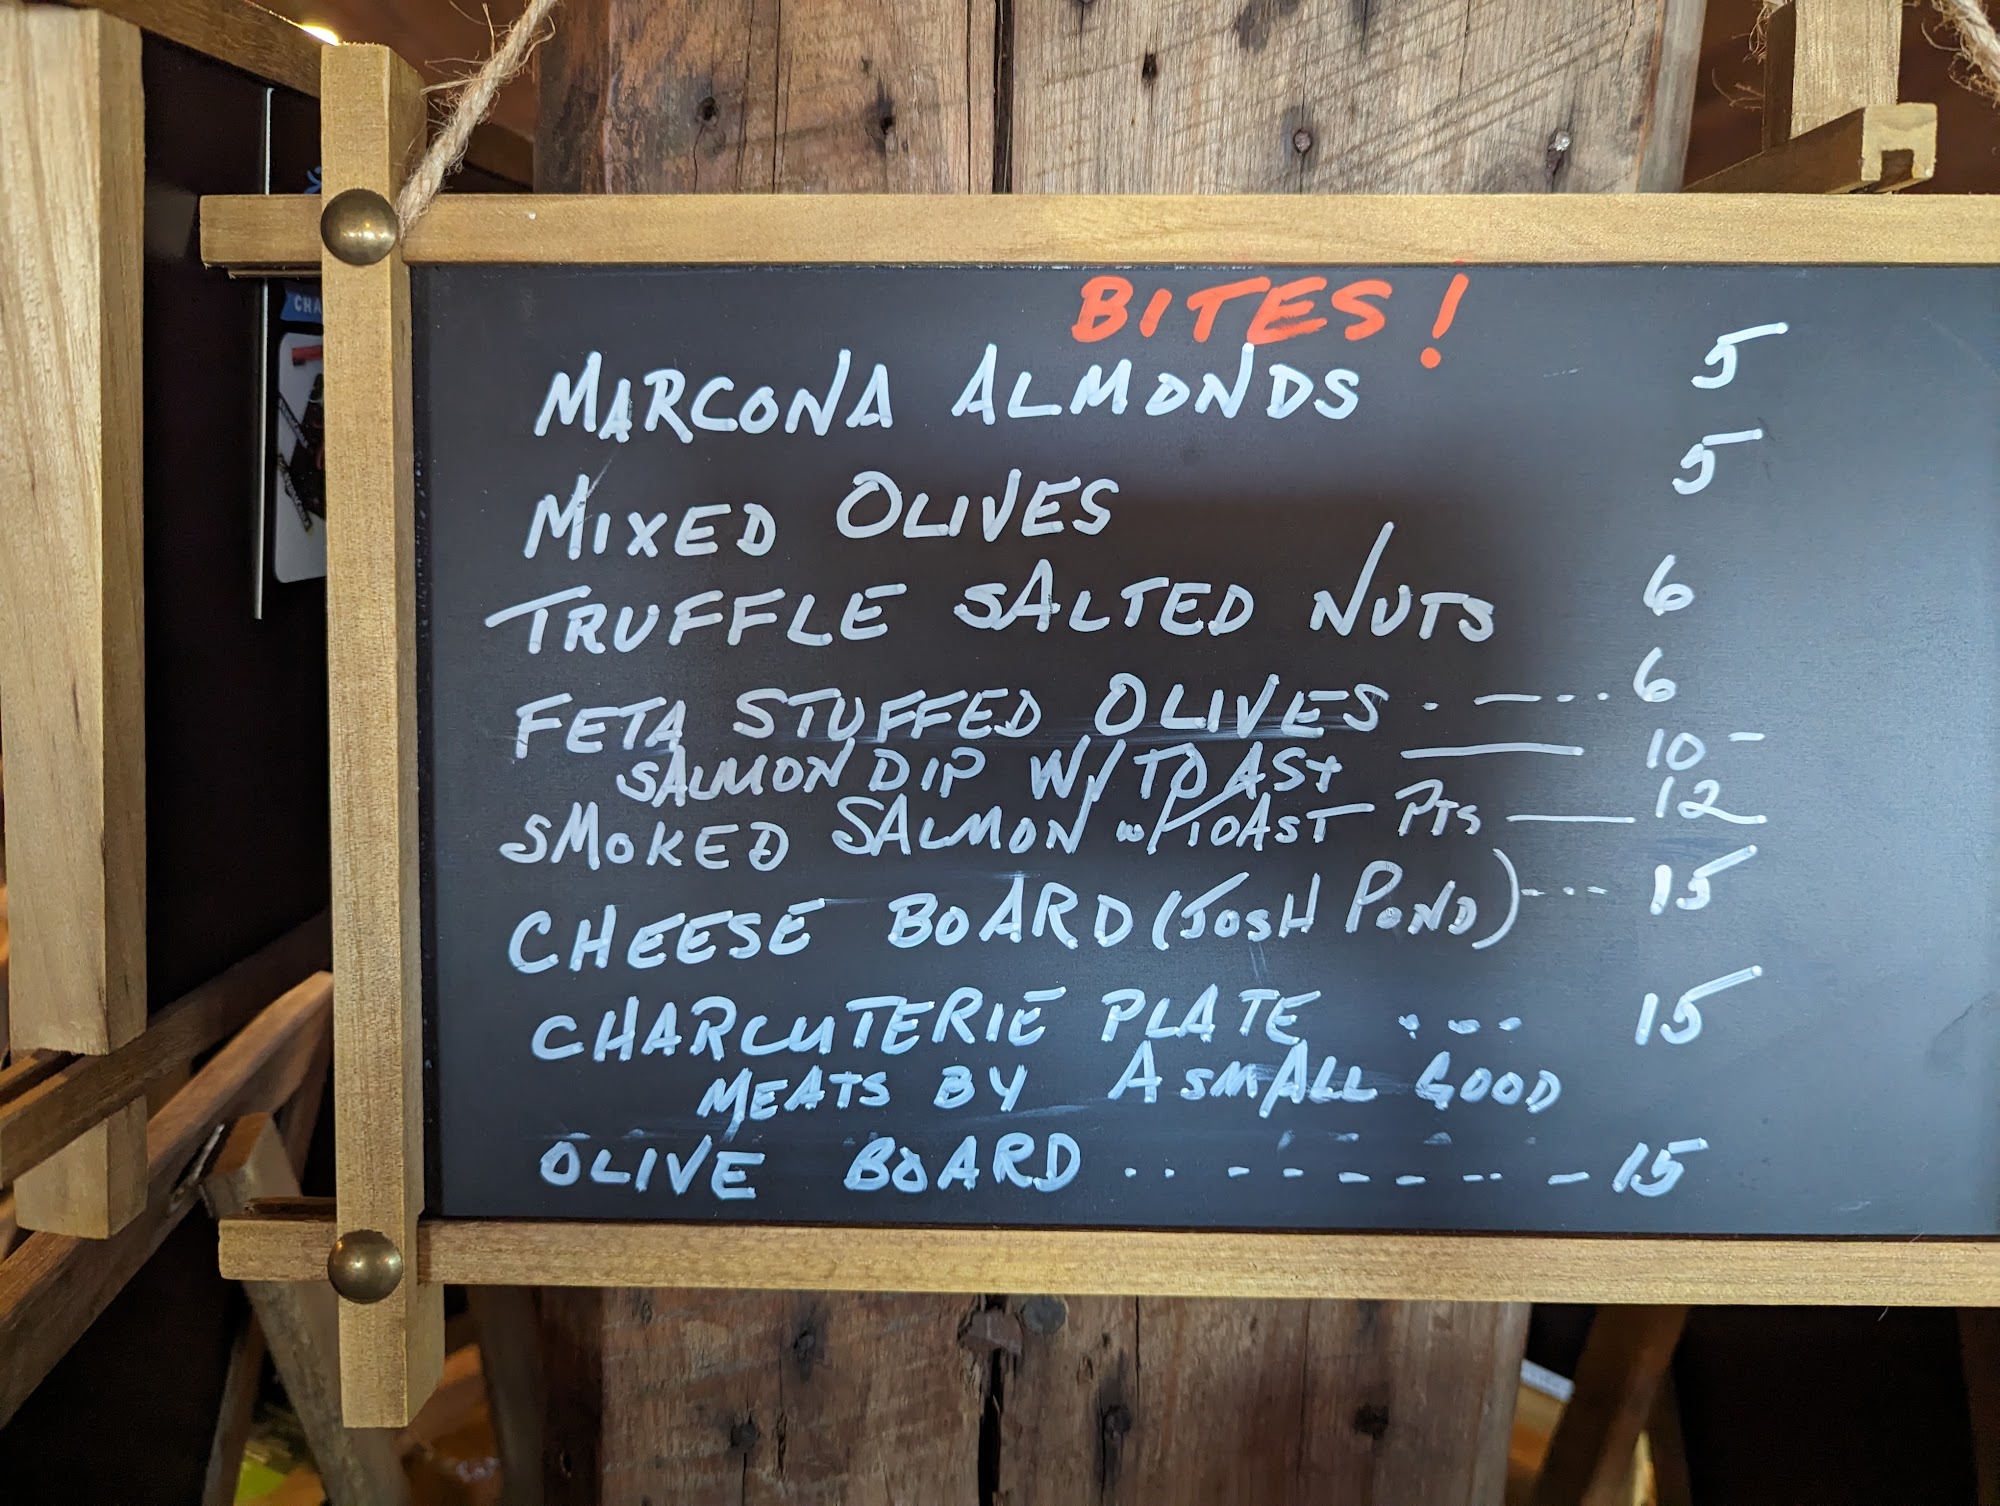 CHA
BITES!
MARCONA ALMONDS 5
MIXED OLIVES 5
TRUFFLE SALTED NUTS 6
FETA STUFFED OLIVES . - - - . . 6
SALMON DIP W/ TOAST —— 10-
SMOKED SALMON w/TOAST PTS —— 12
CHEESE BOARD (JOSH POND) - - - 15
CHARCUTERIE PLATE ... 15
MEATS BY A SMALL GOOD
OLIVE BOARD . . - - - - - - - 15